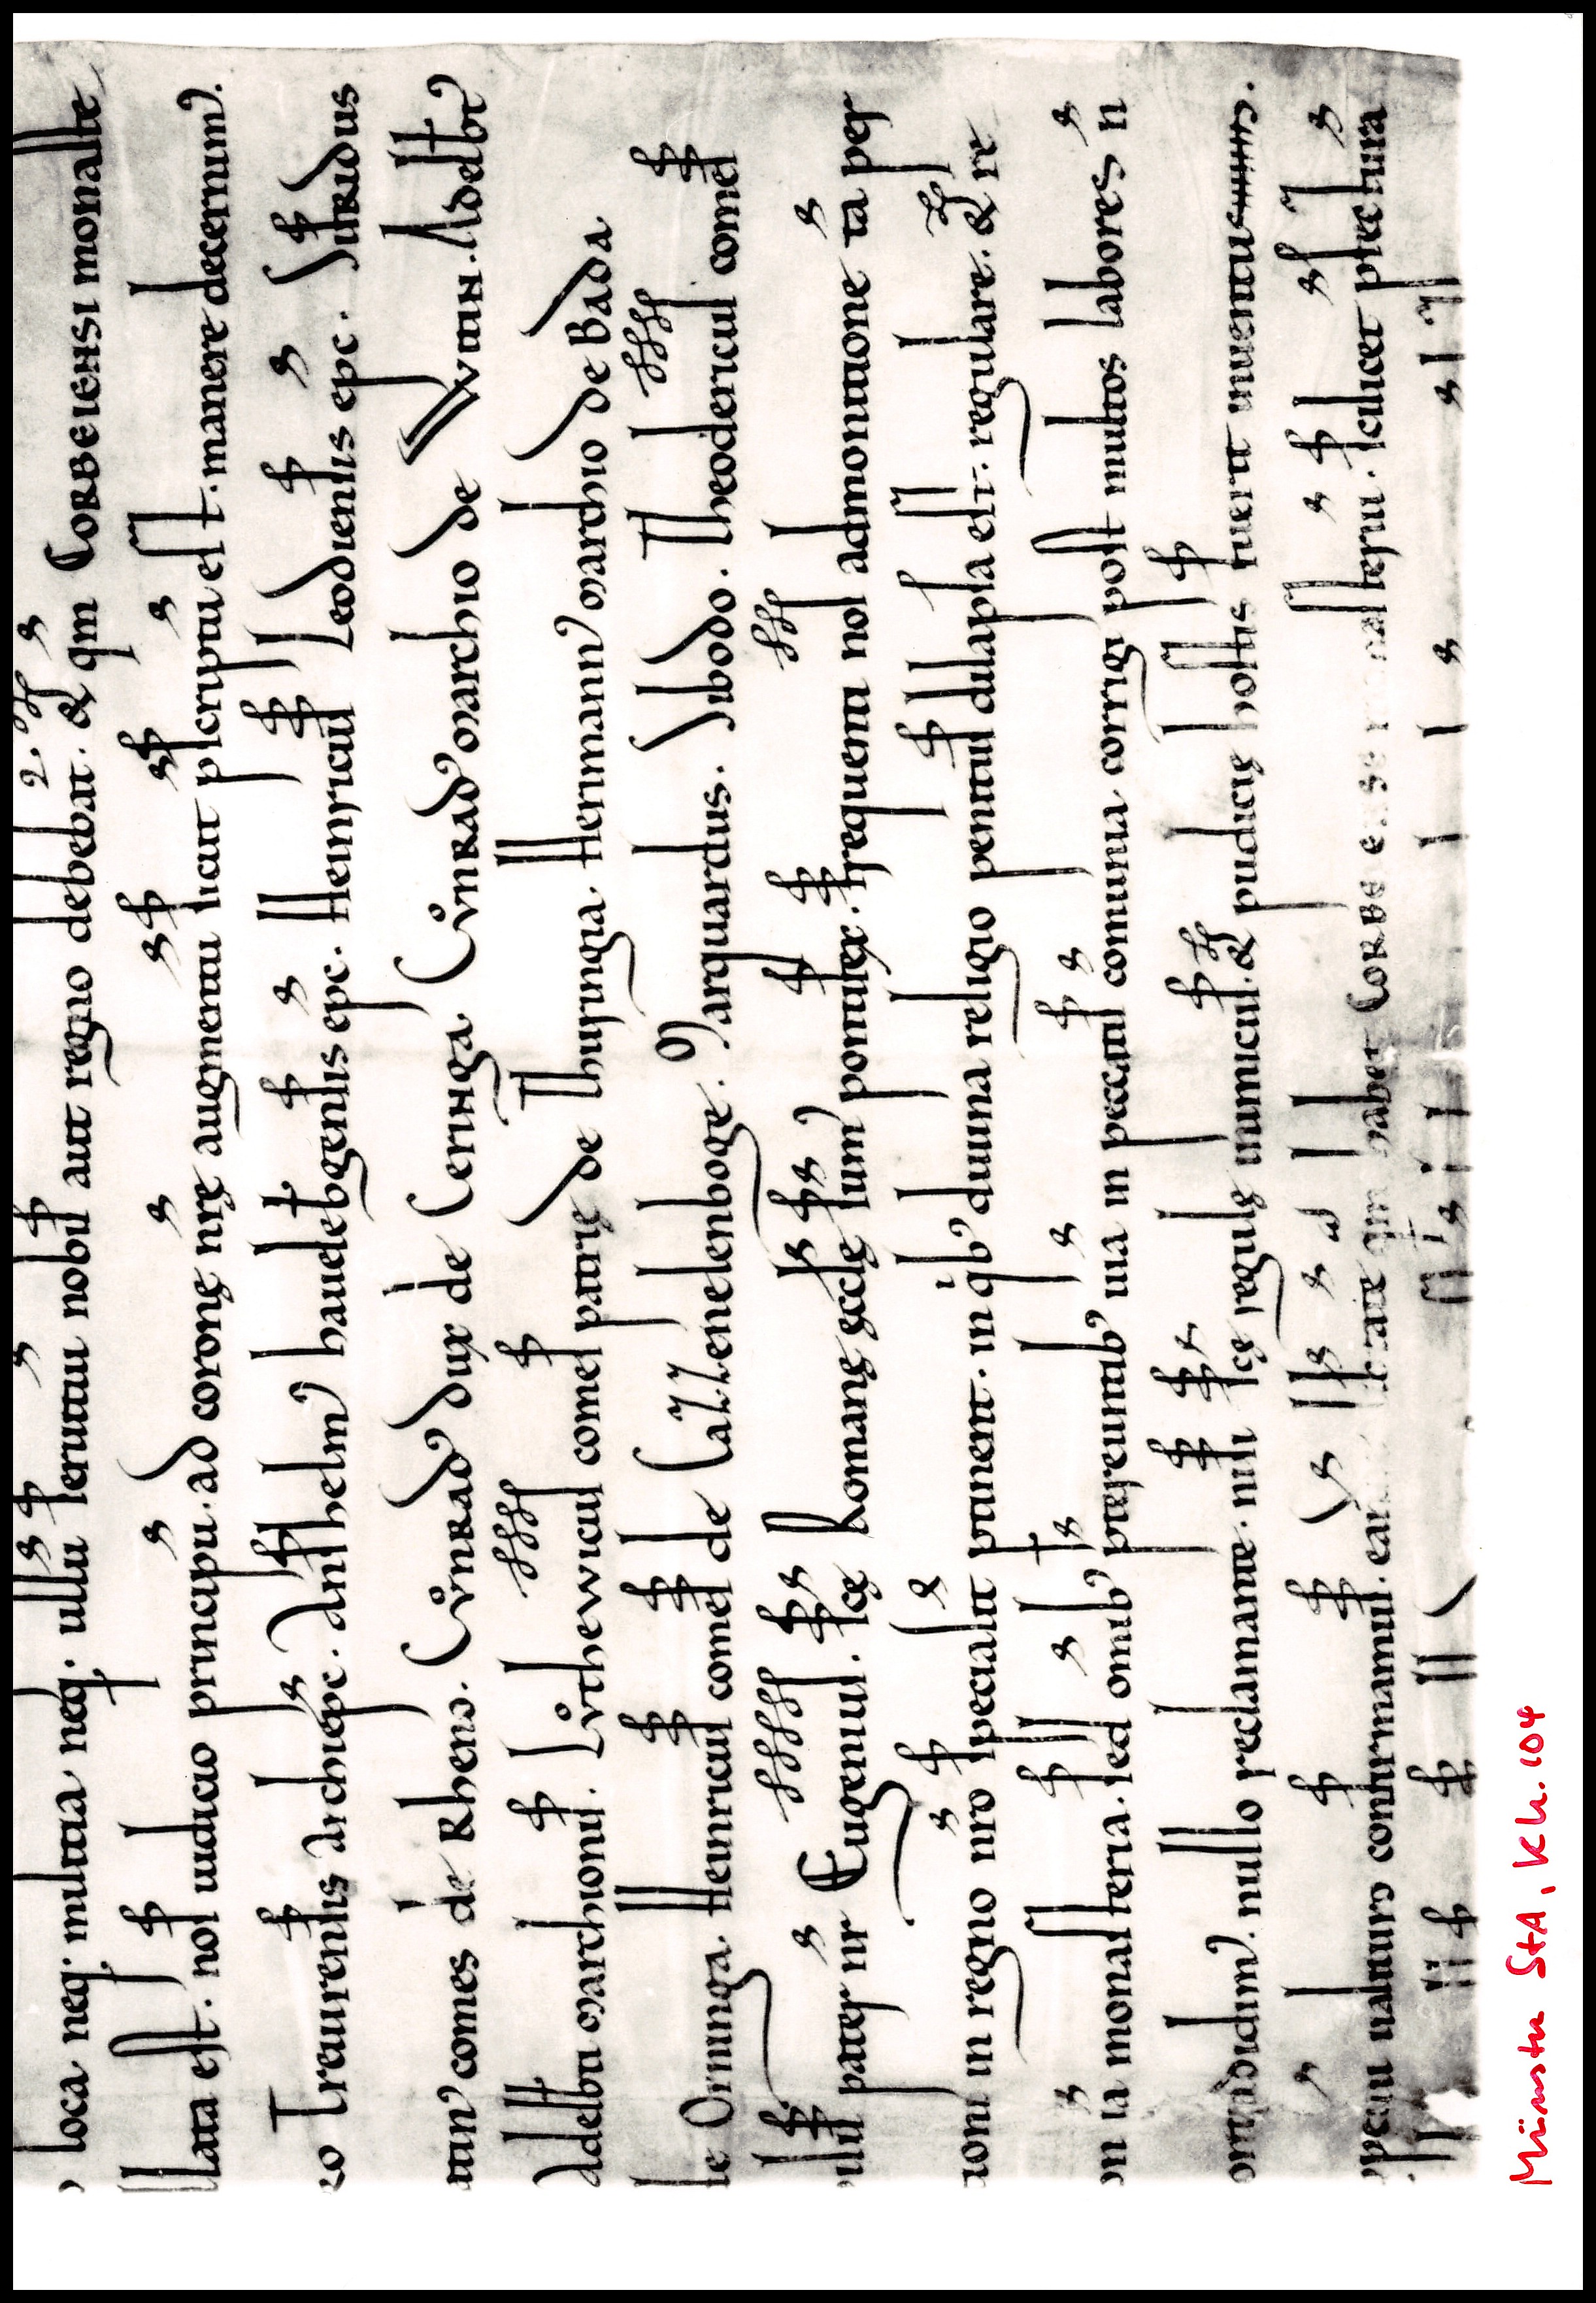 loca neq; multa neq; ullū seruitiū nobis aut regno debebat. & qm̄ CORBEIENSI monaste
lata est. nos iudicio principū. ad coronę nr̄ę augmentū sicut p̄scriptū est. manere decernim᾽.
Treuirensis archiepc. Anshelm᾽ hauelebgensis epc. Heinricus Leodiensis epc. SifRIdus
comes de Rheno. CvͦnRAd᾽ dux de CeriNgA. CvͦnRAd᾽ Marchio de WitiN. Adelb̄t
Adelb̄ti Marchionis. Lvͦthewicus comes patrię de Thuringia. Herimann᾽ Marchio de BAdA.
de Orninga. Heinricus comes de Cazzenelenboge. Marquardus. Sibodo. Theodericus comes
pater nr̄ Eugenius. scę Romanę ęccłę sum᾽ pontifex. frequenti nos admonitione ta per
in regno nr̄o specialit̄ ptinent. in qͥb᾽ diuina religio penitus dilapsa est. regulare. & re
ia monasteria. sed omib᾽ pretereuntib᾽ uia in peccatis comunia corrigi post multos labores n
nullo reclamante. nisi scę regulę inimicus. & pudicię hostis fuerit inuentus.
ualituro confirmamus. habet monasterii. scilicet p̄fectura
Münster StA, KU. 104